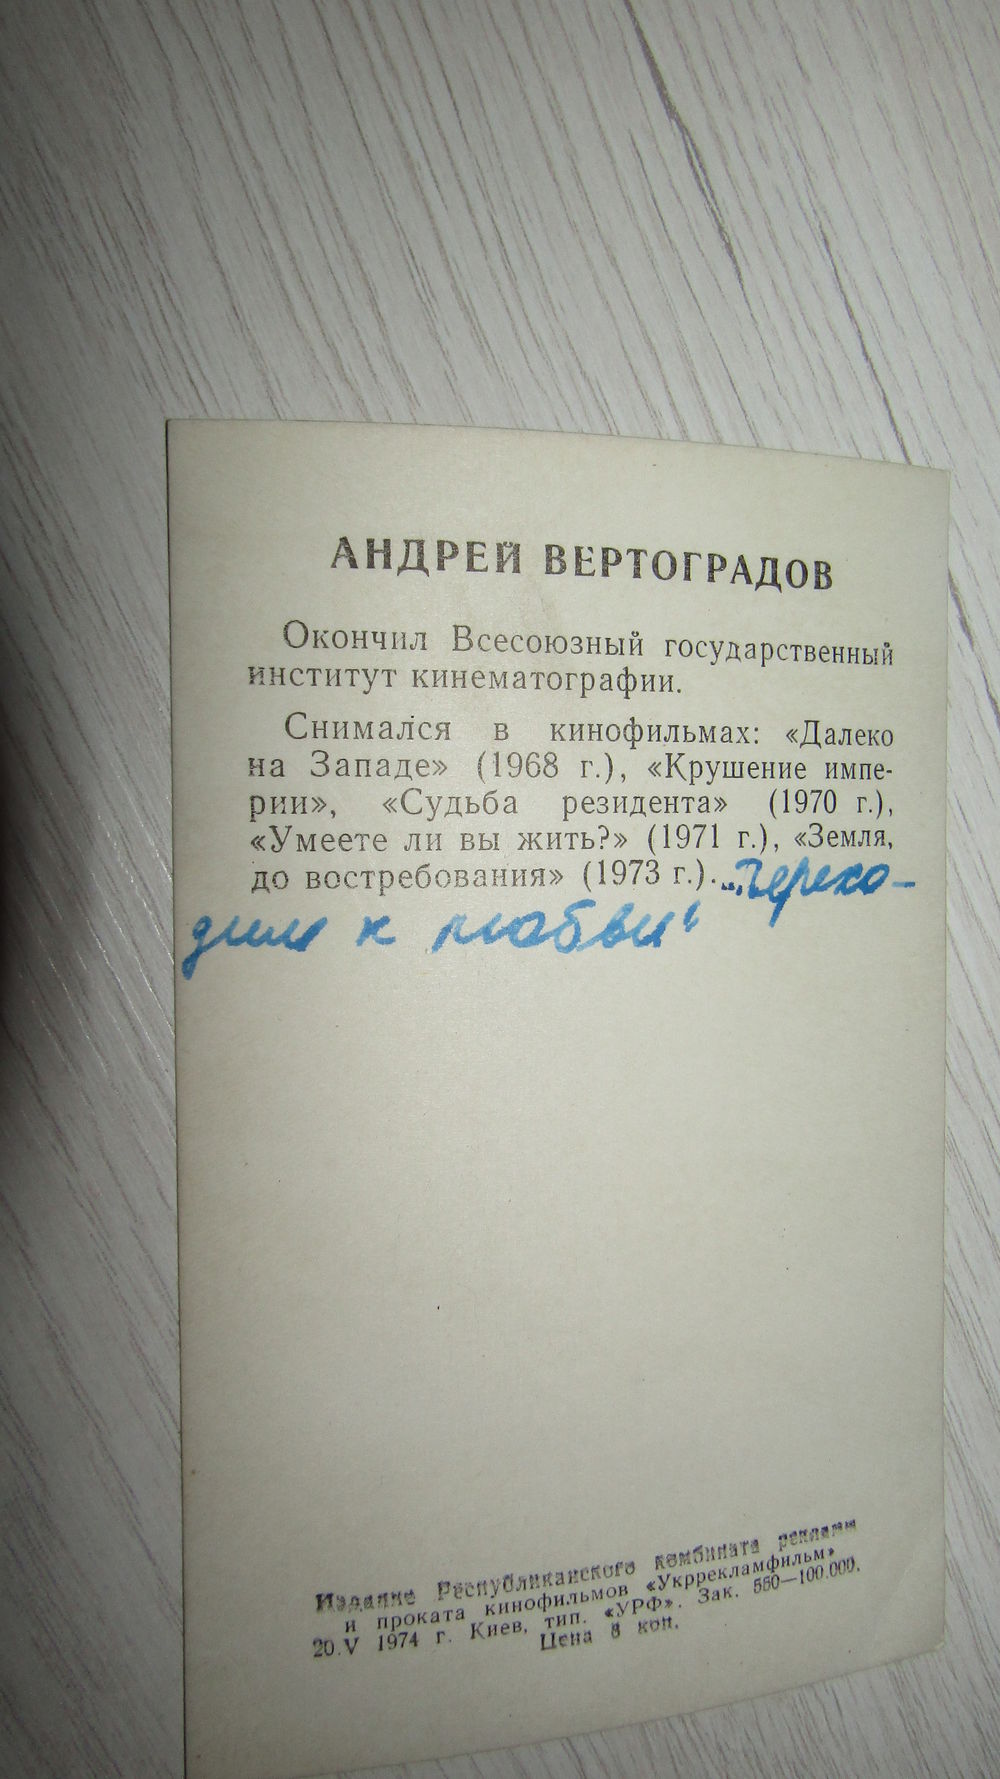 АНДРЕЙ ВЕРТОГРАДОВ
Окончил Всесоюзный государственный
институт кинематографии.
Снимался в кинофильмах: «Далеко
на Западе» (1968 г.), «Крушение импе-
рии», «Судьба резидента» (1970 г.),
«Умеете ли вы жить?» (1971 г.), «Земля,
до востребования» (1973 г.). „Перехо-
дим к любви“
Издание Республиканского комбината рекламы
и проката кинофильмов «Укррекламфильм»
20.V 1974 г. Киев, тип. «УРФ». Зак. 550—100.000.
Цена 8 коп.